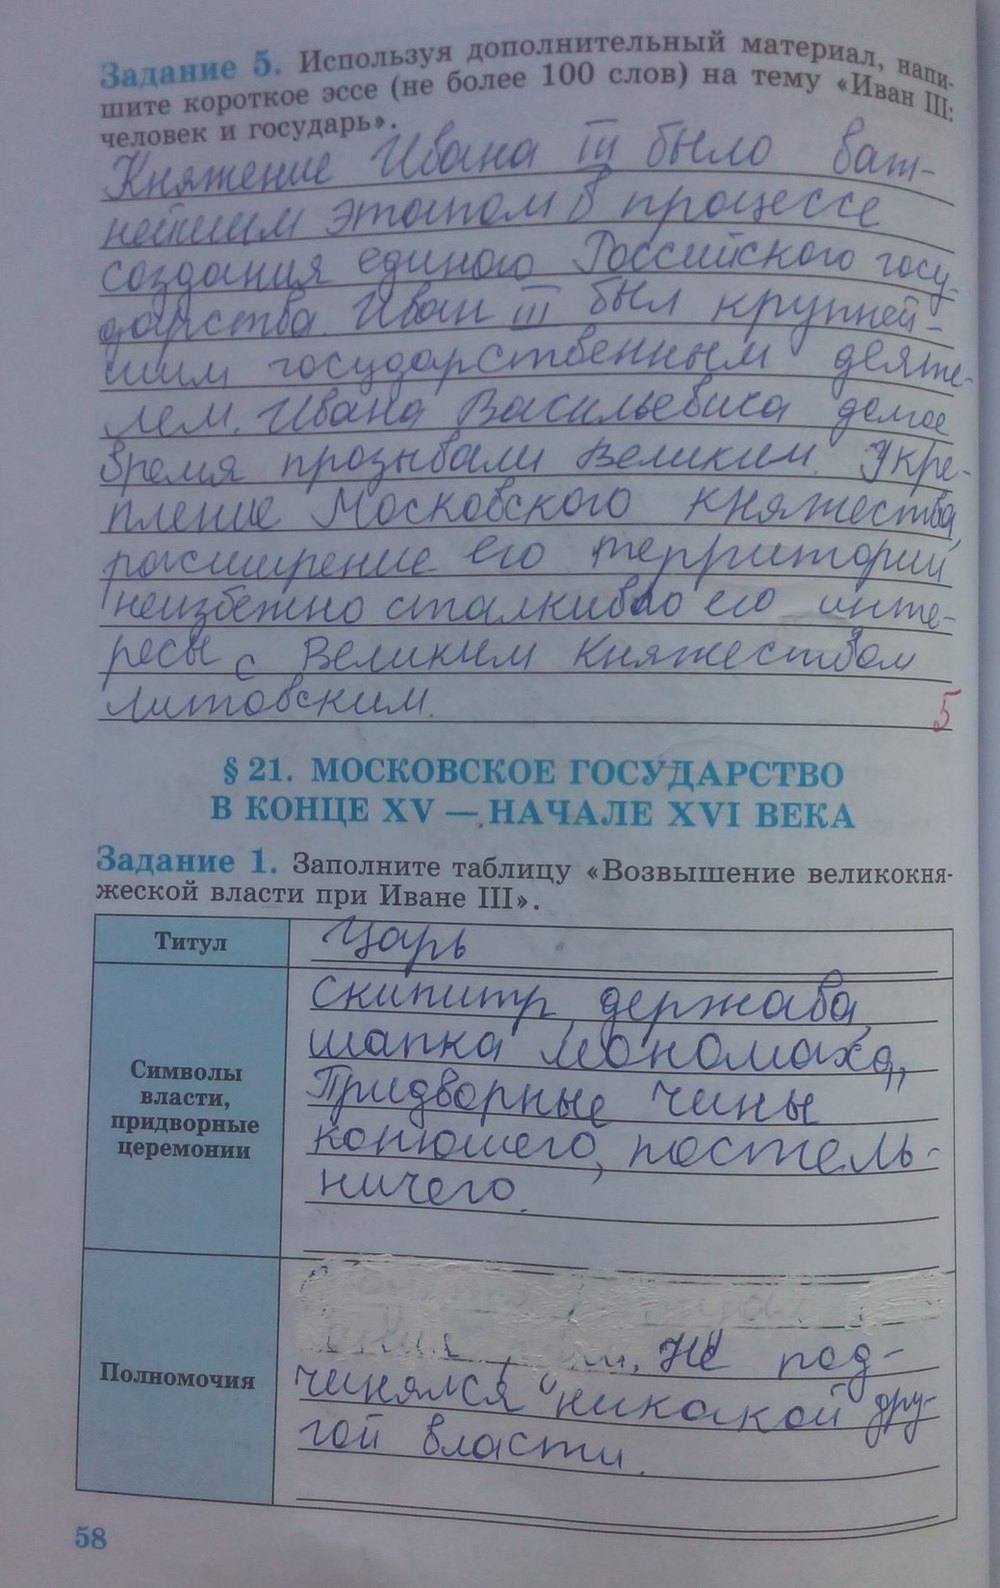 Задание 5. Используя дополнительный материал, напи-
шите короткое эссе (не более 100 слов) на тему «Иван III:
человек и государь».
Княжение Ивана III было важ-
нейшим этапом в процессе
создания единого Российского госу-
дарства. Иван III был крупней-
шим государственным деяте-
лем. Ивана Васильевича долгое
время прозывали Великим. Укре-
пление Московского княжества,
расширение его территории
неизбежно сталкивало его инте-
ресы с Великим княжеством
Литовским.
5
§ 21. МОСКОВСКОЕ ГОСУДАРСТВО
В КОНЦЕ XV — НАЧАЛЕ XVI ВЕКА
Задание 1. Заполните таблицу «Возвышение великокня-
жеской власти при Иване III».
Титул
Царь
Символы
власти,
придворные
церемонии
скипитр, держава,
шапка Мономаха,
Придворные чины
конюшего, постель-
ничего.
Полномочия
Не под-
чинялся никакой дру-
гой власти.
58